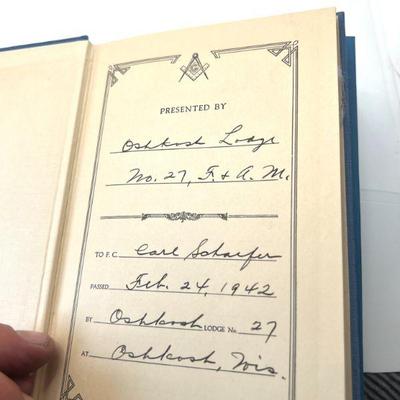 PRESENTED BY
Oshkosh Lodge
No. 27, F. & A. M.
TO F. C. Carl Schaefer
PASSED Feb. 24, 1942
BY Oshkosh LODGE No. 27
AT Oshkosh, Wis.